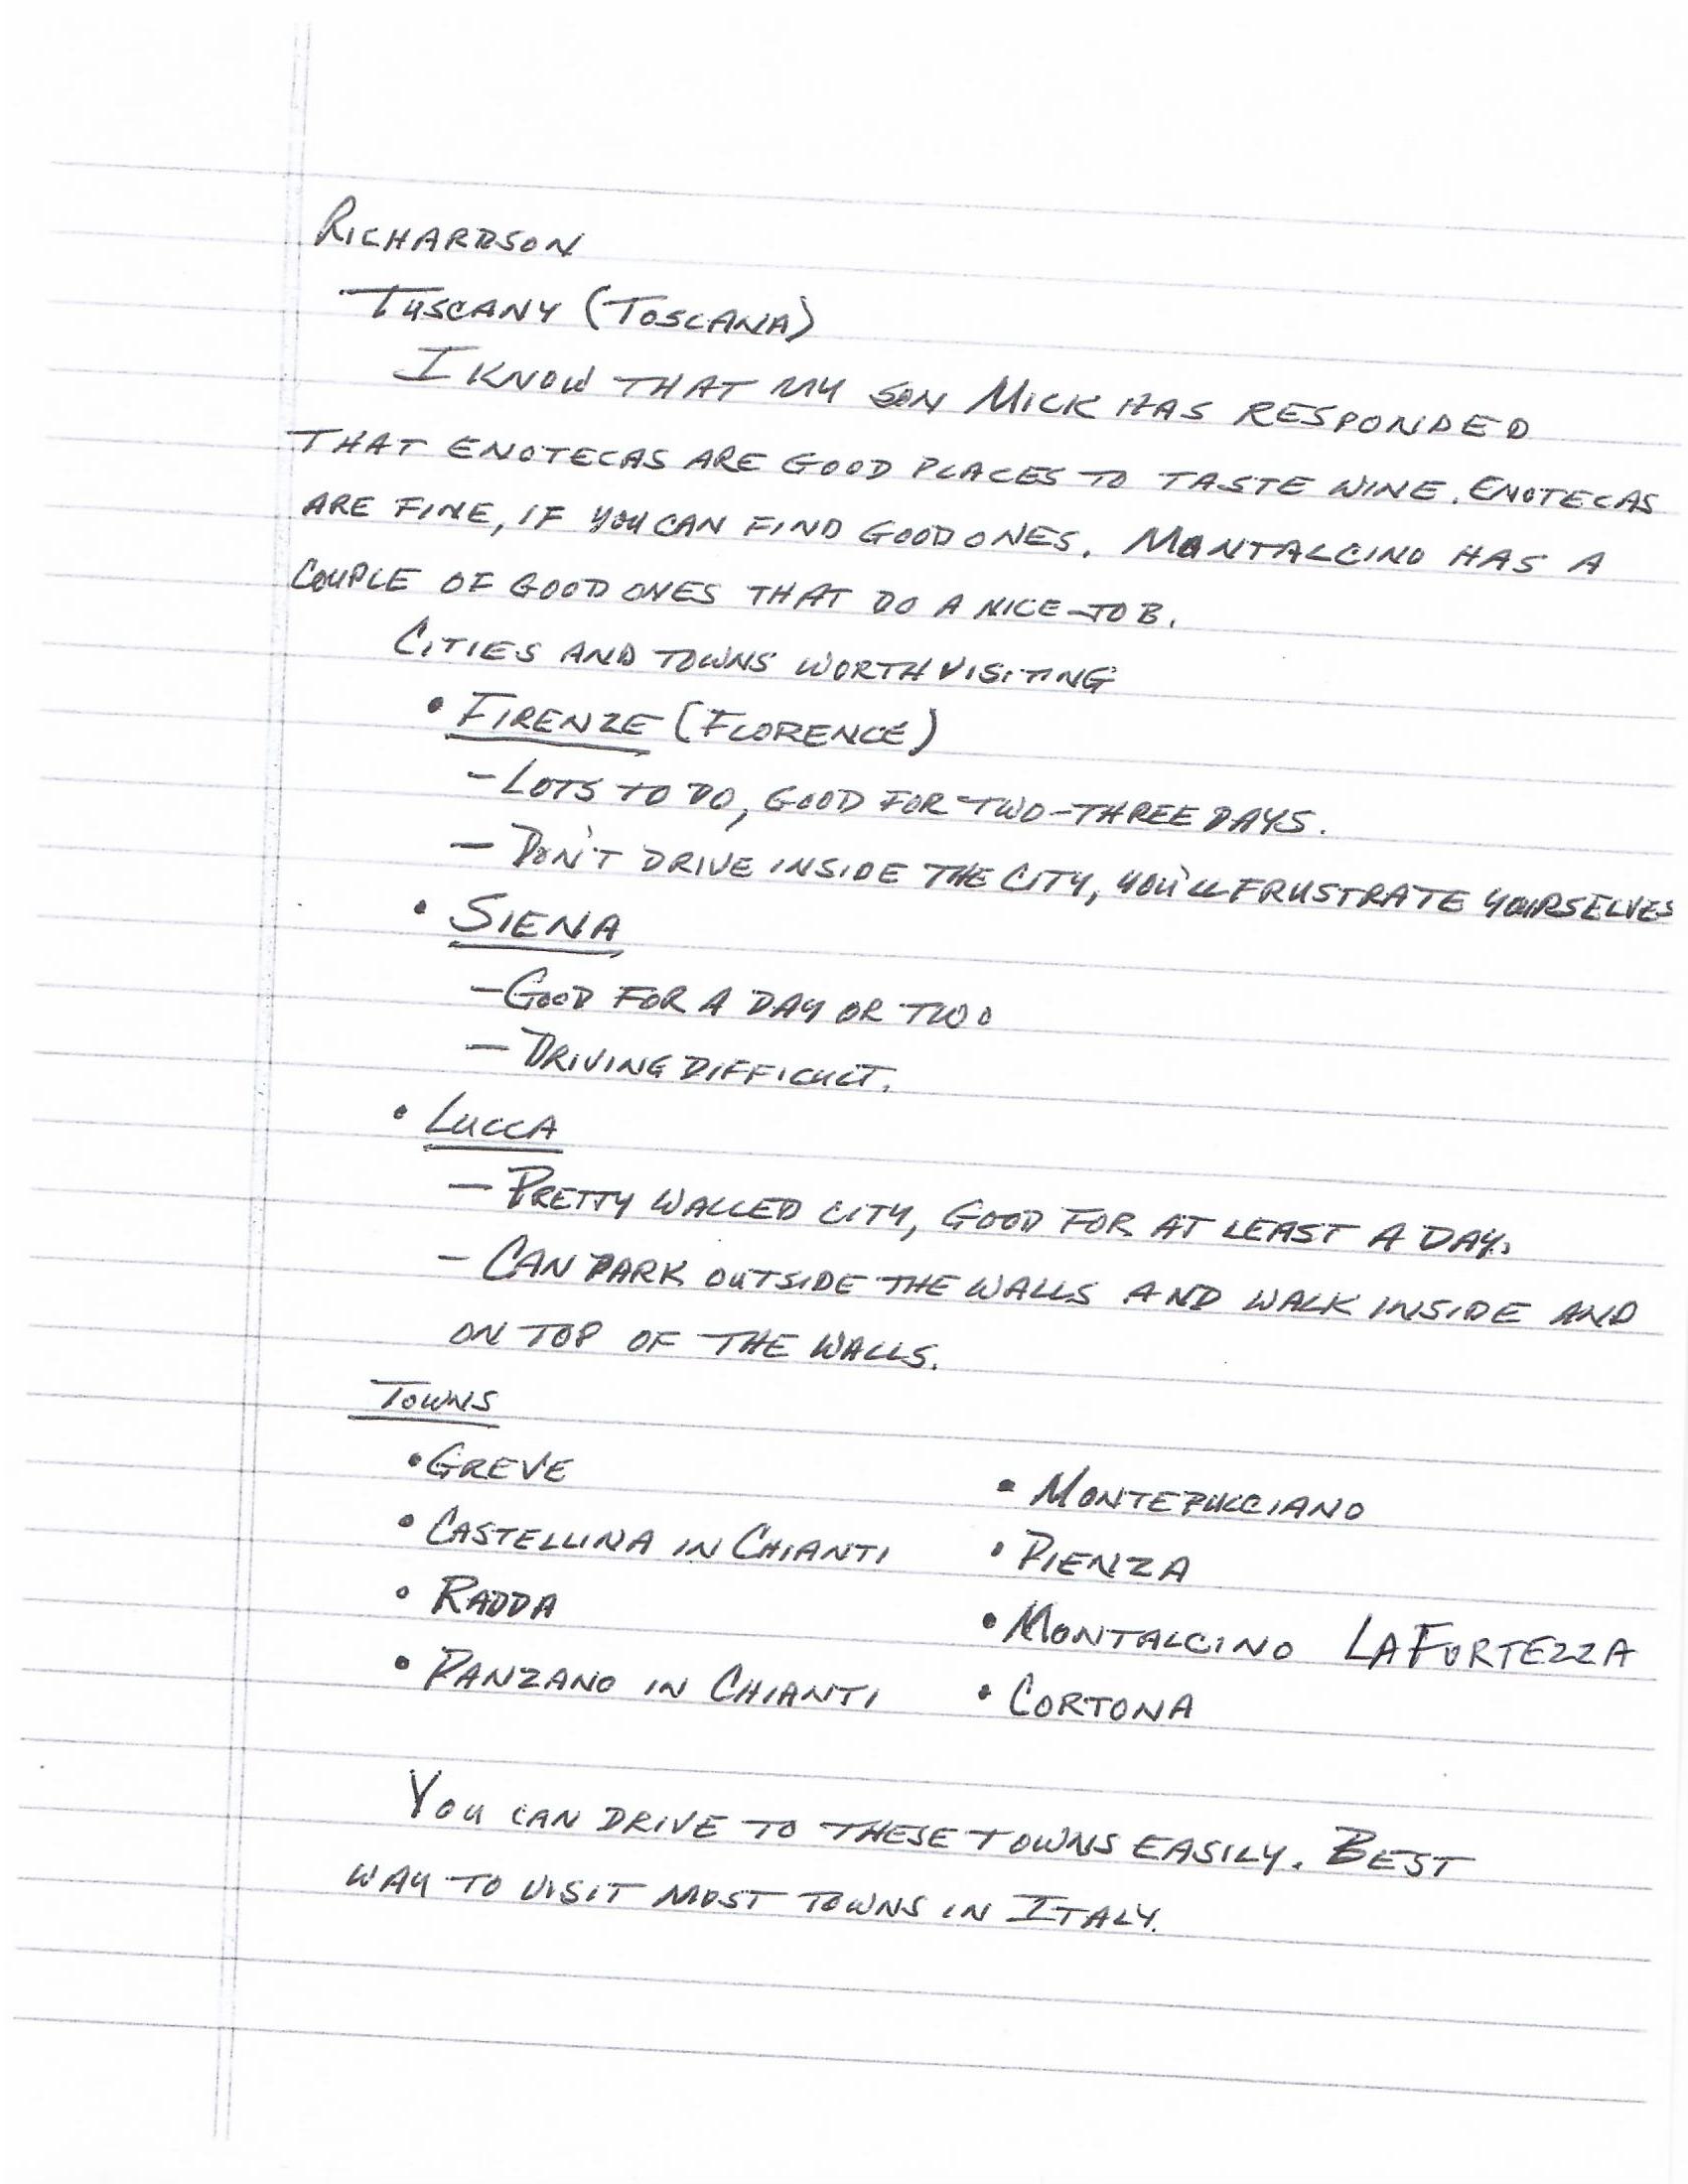 RICHARDSON
TUSCANY (TOSCANA)
I KNOW THAT MY SON MICK HAS RESPONDED
THAT ENOTECAS ARE GOOD PLACES TO TASTE WINE. ENOTECAS
ARE FINE, IF YOU CAN FIND GOOD ONES. MONTALCINO HAS A
COUPLE OF GOOD ONES THAT DO A NICE JOB.
CITIES AND TOWNS WORTH VISITING
• FIRENZE (FLORENCE)
- LOTS TO DO, GOOD FOR TWO-THREE DAYS.
- DON'T DRIVE INSIDE THE CITY, YOU'LL FRUSTRATE YOURSELVES
• SIENA
- GOOD FOR A DAY OR TWO
- DRIVING DIFFICULT.
• LUCCA
- PRETTY WALLED CITY, GOOD FOR AT LEAST A DAY.
- CAN PARK OUTSIDE THE WALLS AND WALK INSIDE AND
ON TOP OF THE WALLS.
TOWNS
• GREVE
• CASTELLINA IN CHIANTI
• RADDA
• PANZANO IN CHIANTI
• MONTEPULCIANO
• PIENZA
• MONTALCINO LA FORTEZZA
• CORTONA
YOU CAN DRIVE TO THESE TOWNS EASILY. BEST
WAY TO VISIT MOST TOWNS IN ITALY.